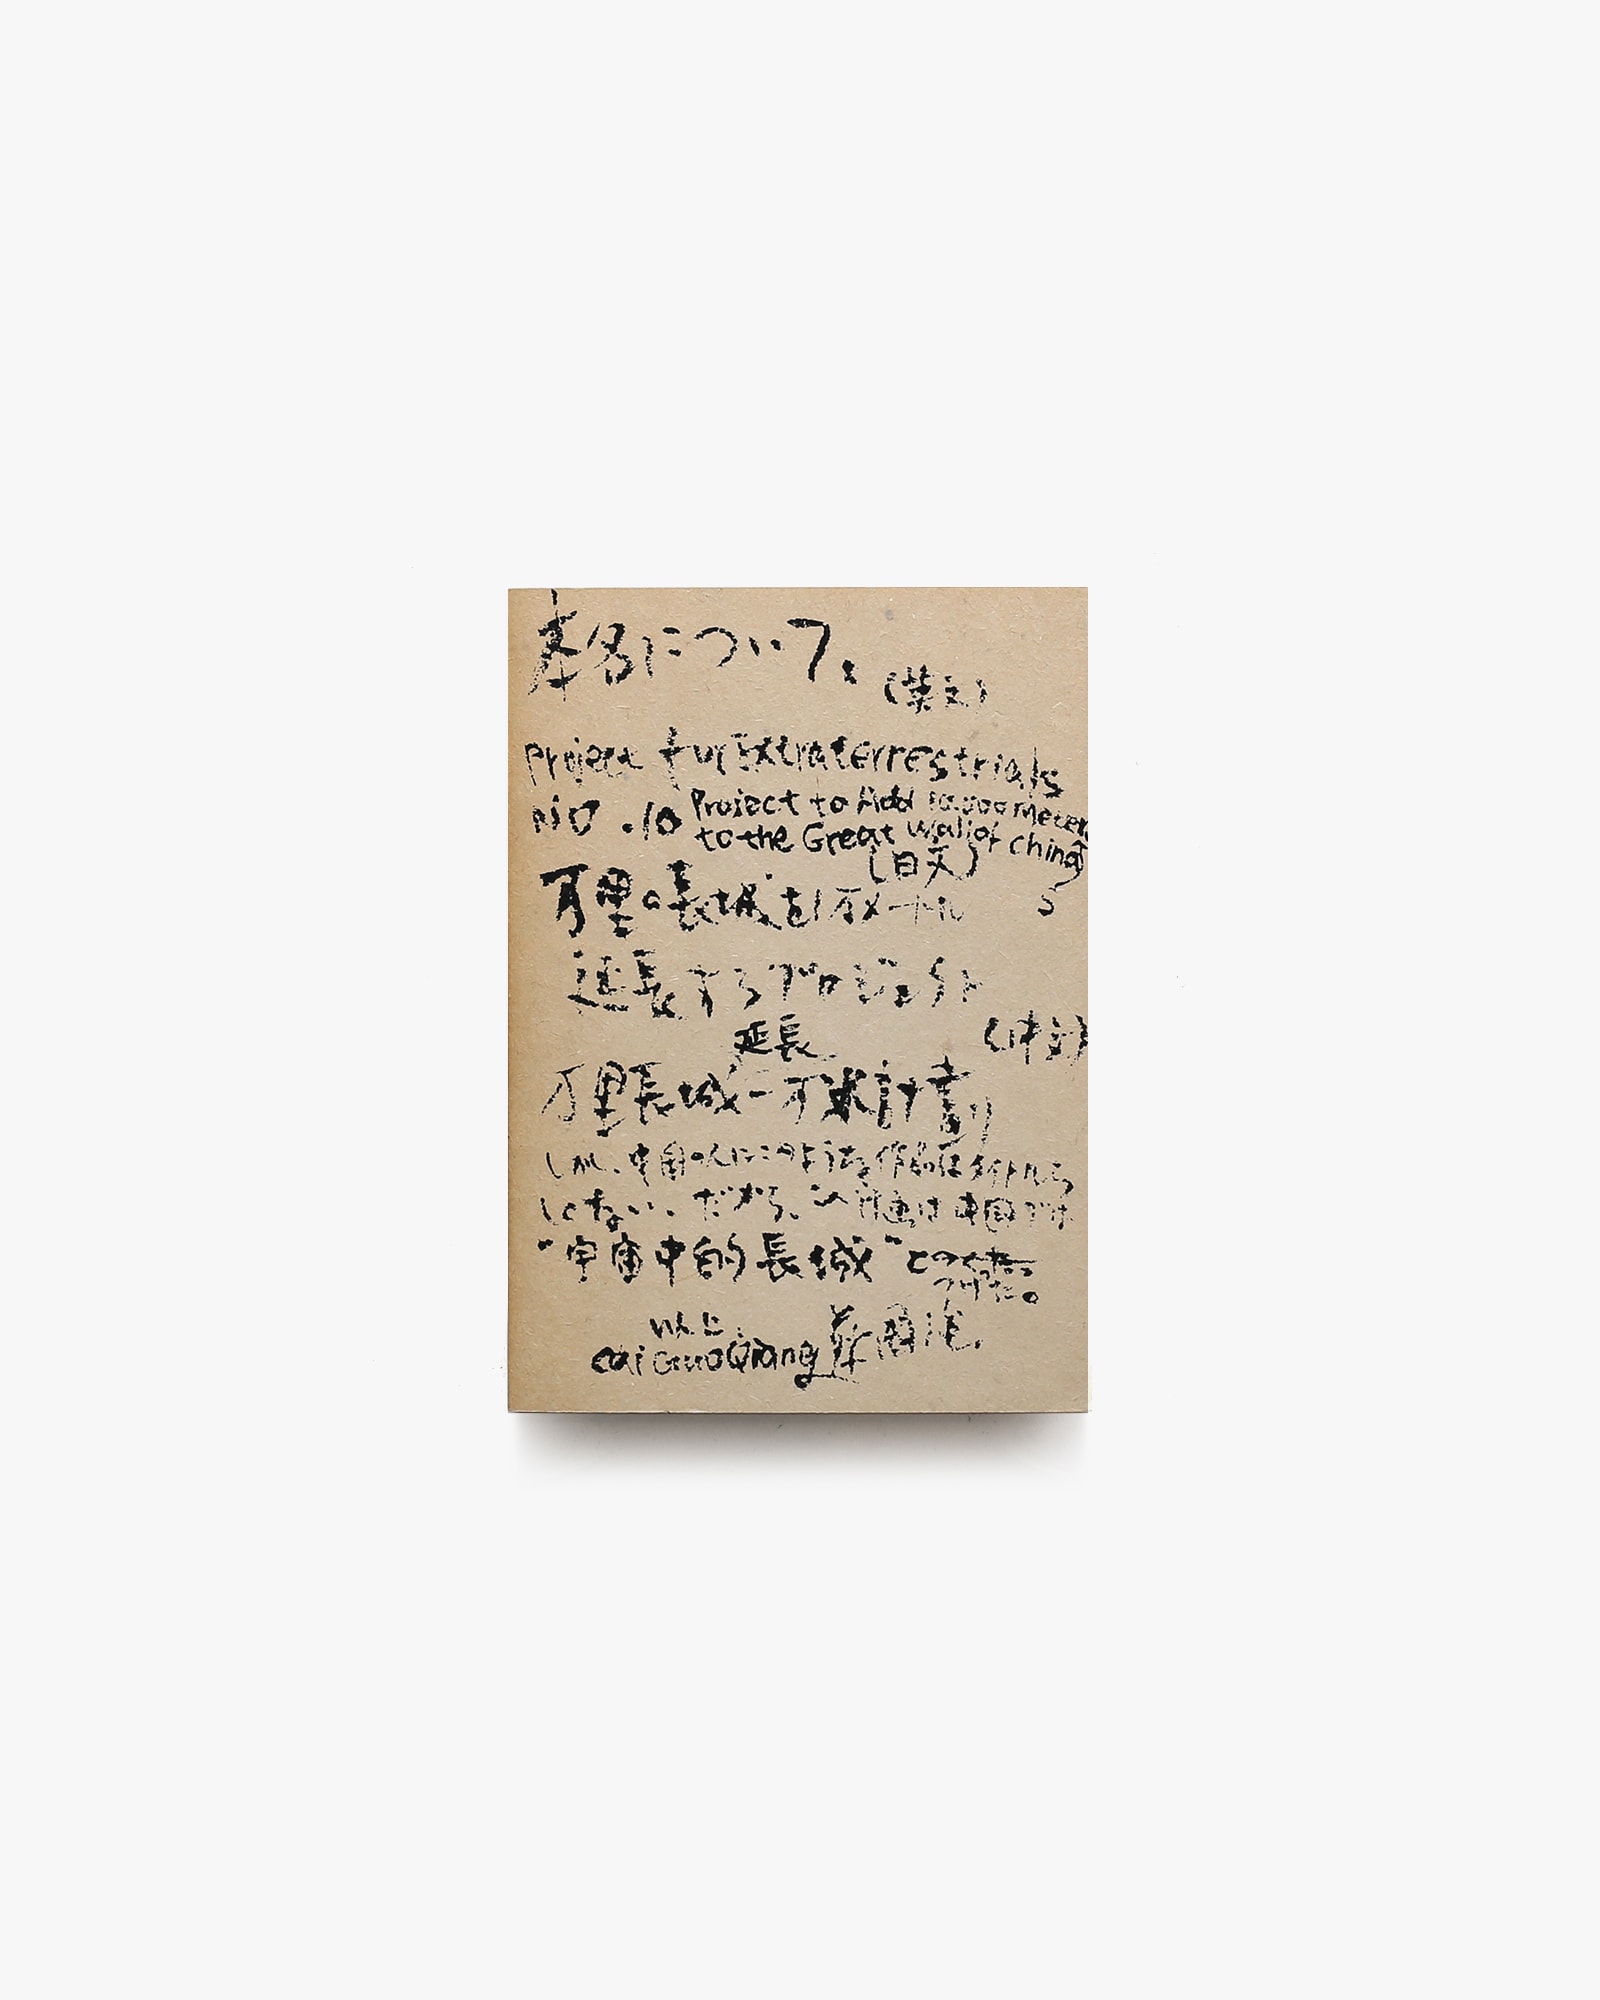 本名について、
(英文)
Project für Extraterrestrials
NO .10 Project to Add 10.000 Meters
to the Great Wall of China
(日文)
万里の長城を1万メートル
延長するプロジェクト
(中文)
延長
万里長城一万米計劃
しかし、中国の人はこのような作品はタイトルらしくない、だから、この計画は中国では
"宇宙中的長城"と
つけた。
以上.
Cai Guo Qiang 蔡國強.